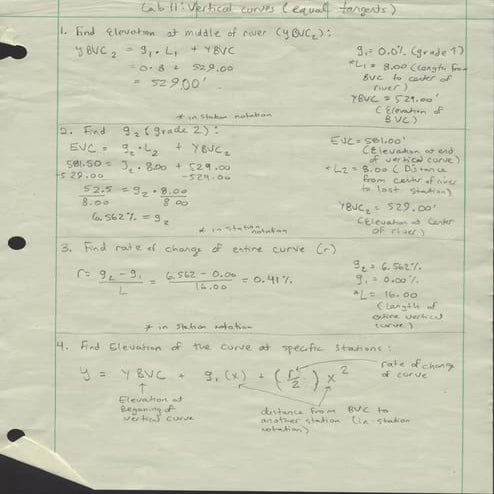 Lab 11: Vertical curves (equal tangents)
1. Find Elevation at middle of river (yBVC2):
YBVC2 = g1 · L1 + YBVC
= 0 · 8 + 529.00
= 529.00'
* in station notation
g1 = 0.0% (grade 1)
*L1 = 8.00 (Length from
BVC to center of
river)
YBVC = 529.00'
(Elevation of
BVC)
2. Find g2 (grade 2):
EVC = g2 · L2 + YBVC2
581.50 = g2 · 8.00 + 529.00
-529.00 -529.00
52.5 = g2 · 8.00
8.00 8.00
6.562% = g2
* in station notation
EVC = 581.00'
(Elevation at end
of vertical curve)
* L2 = 8.00 (Distance
from center of river
to last station)
YBVC2 = 529.00'
(Elevation at center
of river)
3. Find rate of change of entire curve (r)
r = g2 - g1 = 6.562 - 0.00 = 0.41%
L 16.00
* in station notation
g2 = 6.562%
g1 = 0.00%
*L = 16.00
(Length of
entire vertical
curve)
4. Find Elevation of the curve at specific stations:
y = YBVC + g1 (x) + (r/2) x²
rate of change
of curve
Elevation at
Beganing of
vertical curve
distance from BVC to
another station (in station
notation)